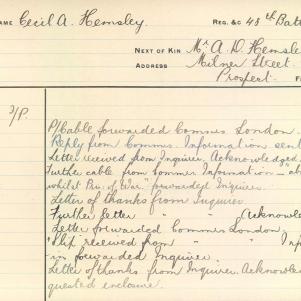 NAME Cecil A. Hemsley REG. &C 48th Batt
NEXT OF KIN Mr A. D. Hemsle
ADDRESS Milner Street
Prospect.
I/P.
P/Cable forwarded Commrs London
Reply from Commrs. Information sent
Letter received from Inquirer. Acknowledged
Further cable from Commrs Information
whilst Pris. of War" forwarded Inquirer.
Letter of thanks from Inquirer
Further letter " " Acknowle
Letter forwarded Commrs London,
Slip received from " " In
in forwarded Inquirer.
Letter of thanks from Inquirer. Acknowle
quested enclosure.